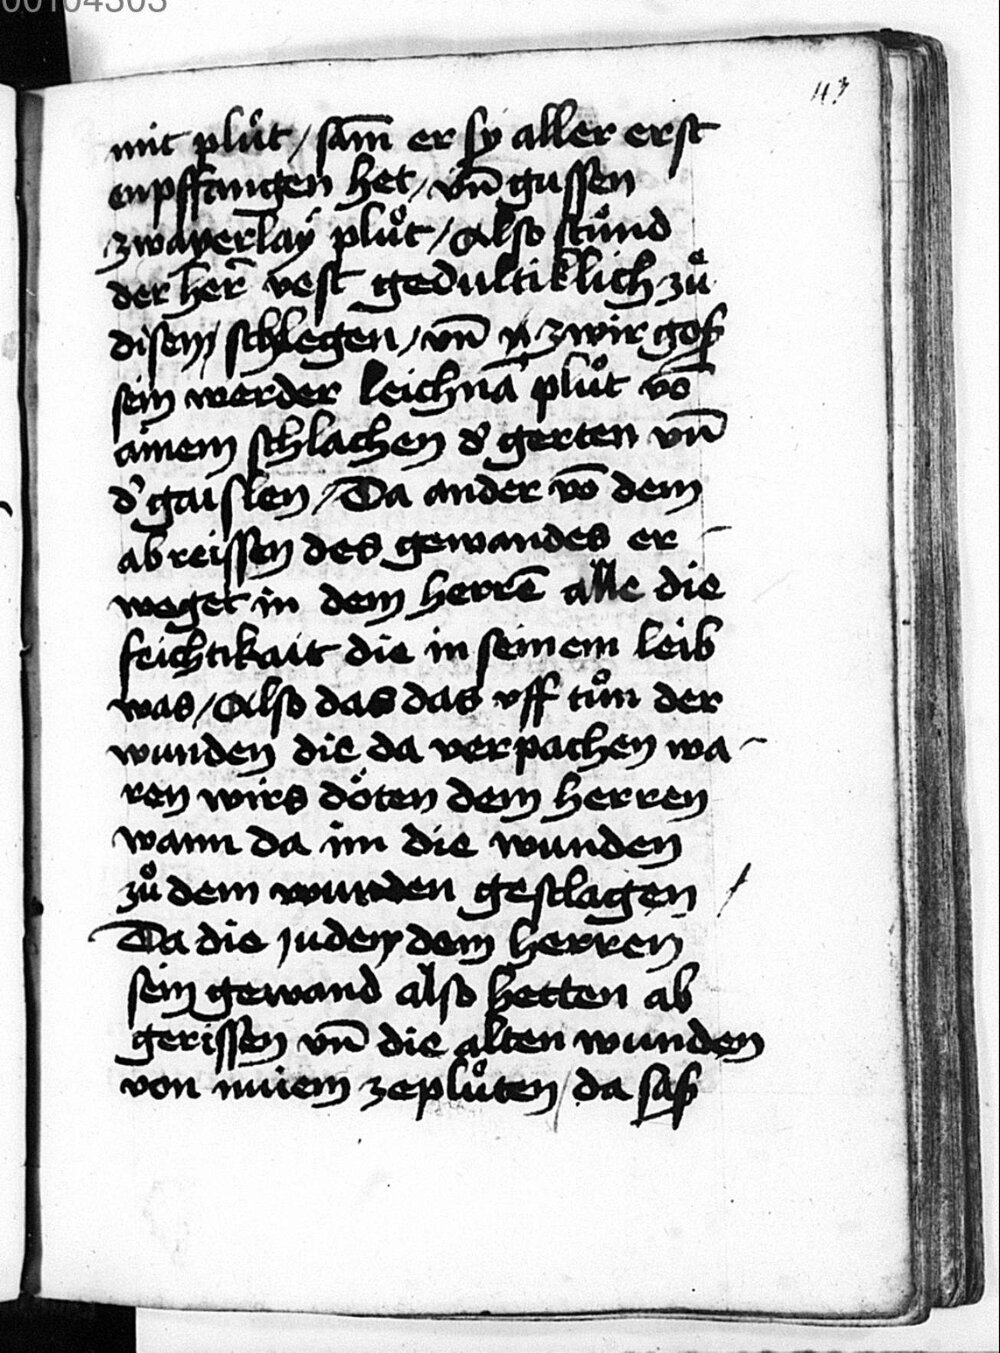 00104303
43
mit plůt / sam̄ er sy aller erst
enpffangen het / vn̄ gussen
zwayerlaÿ plůt / Also stůnd
der her̄ vest gedultiklich zů
disem / schlegen / vn̄ zwir gosß
sein werder leichnā plůt vō
ainem schlachen d' gerten vn̄
d' gaislen / Da ander vō dem
ab reissen des gewandes er -
weget in dem herrē alle die
feichtikait die in seinem leib
was / Also das das vff tůn der
wunden die da verpachen wa -
ren wirs döten dem herren
wann da im die wunden
zů dem wurden geslagen /
Da die juden dem herren
sein gewand also hetten ab
gerissen vn̄ die alten wunden
von nuiem zeplůten / da saß